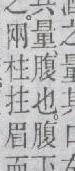 其量腹也。腹下
之兩柱拄眉而